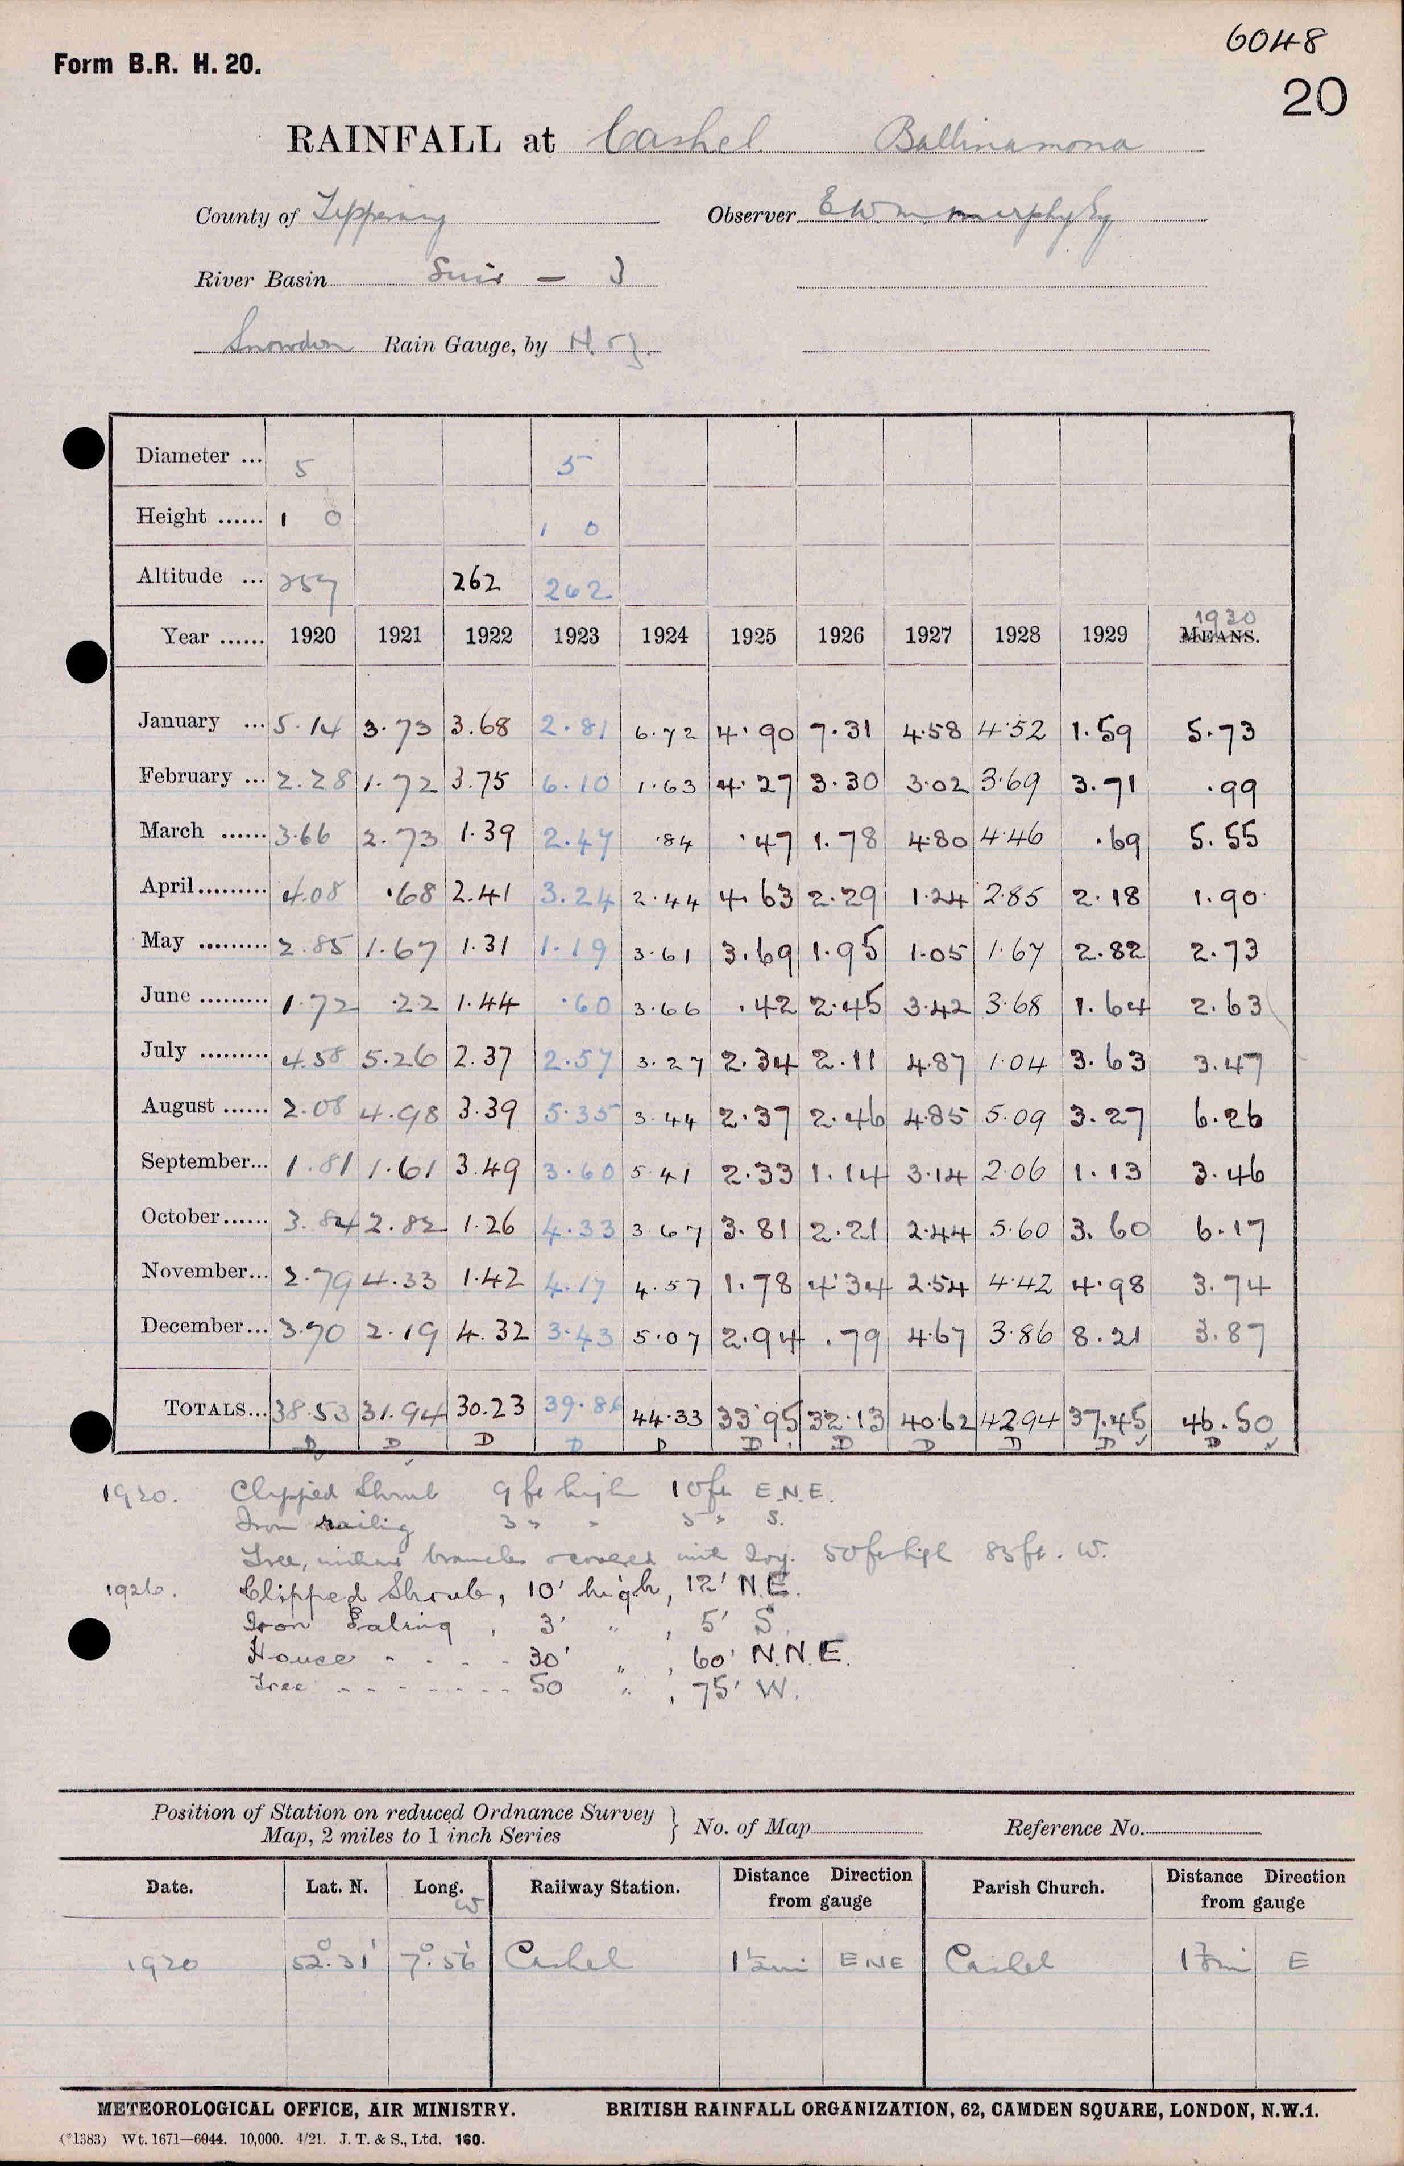 6048
Form B.R. H. 20.
20
RAINFALL at Cashel Ballinamona
County of Tipperary Observer E W M Murphy Esq
River Basin Suir — 3
Snowdon Rain Gauge, by
Diameter ... 5 5
Height ...... 1 0 1 0
Altitude ... 257 262 262
1930
Year ...... 1920 1921 1922 1923 1924 1925 1926 1927 1928 1929 MEANS.
January ... 5.14 3.73 3.68 2.81 6.72 4.90 7.31 4.58 4.52 1.59 5.73
February ... 2.28 1.72 3.75 6.10 1.63 4.27 3.30 3.02 3.69 3.71 .99
March ...... 3.66 2.73 1.39 2.47 .84 .47 1.78 4.80 4.46 .69 5.55
April ......... 4.08 .68 2.41 3.24 2.44 4.63 2.29 1.24 2.85 2.18 1.90
May ......... 2.85 1.67 1.31 1.19 3.61 3.69 1.95 1.05 1.67 2.82 2.73
June ......... 1.72 .22 1.44 .60 3.66 .42 2.45 3.42 3.68 1.64 2.63
July ......... 4.58 5.26 2.37 2.57 3.27 2.34 2.11 4.87 1.04 3.63 3.47
August ...... 2.08 4.98 3.39 5.35 3.44 2.37 2.46 4.85 5.09 3.27 6.26
September... 1.81 1.61 3.49 3.60 5.41 2.33 1.14 3.14 2.06 1.13 3.46
October...... 3.84 2.82 1.26 4.33 3.67 3.81 2.21 2.44 5.60 3.60 6.17
November... 2.79 4.33 1.42 4.17 4.57 1.78 4.34 2.54 4.42 4.98 3.74
December... 3.70 2.19 4.32 3.43 5.07 2.94 .79 4.67 3.86 8.21 3.87
TOTALS... 38.53 31.94 30.23 39.86 44.33 33.95 32.13 40.62 42.94 37.45 46.50
D D D D D D D D D D D
1920. Clipped Shrub 9 ft high 10 ft E.N.E.
Iron railing 3 " " 5 " S.
Tree, without branches covered with Ivy. 50 ft high 85 ft. W.
1926. Clipped Shrub, 10' high, 12' N.E.
Iron Paling, 3' " , 5' S.
House - - - - 30' " , 60' N.N.E.
Tree - - - - - - - 50 " , 75' W.
Position of Station on reduced Ordnance Survey
Map, 2 miles to 1 inch Series } No. of Map Reference No.
Date. Lat. N. Long. W Railway Station. Distance Direction from gauge Parish Church. Distance Direction from gauge
1920 52° 31' 7° 56' Cashel 1½ mi ENE Cashel E
METEOROLOGICAL OFFICE, AIR MINISTRY. BRITISH RAINFALL ORGANIZATION, 62, CAMDEN SQUARE, LONDON, N.W.1.
(*1383) Wt. 1671—6044. 10,000. 4/21. J. T. & S., Ltd. 160.